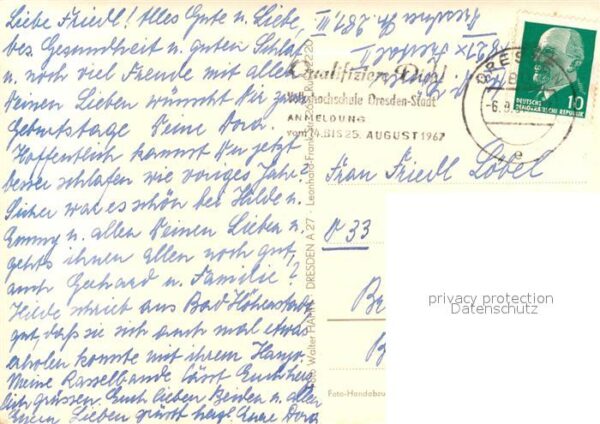 Liebe Friedl! Alles Gute u. Liebe,
bes. Gesundheit u. guten Schlaf
u. noch viel Freude mit allen
Deinen Lieben wünscht Dir zum
Geburtstage Deine Dora.
Hoffentlich kannst Du jetzt
besser schlafen wie voriges Jahr?
Sicher war es schön bei Hilde u.
Emmy u. allen Deinen Lieben u.
gehts ihnen allen noch gut,
auch Gerhard u. Familie?
Hilde schrieb aus Bad
gut, daß sie sich auch mal etwas
erholen konnte mit ihrem Hansjo.
Meine Rasselbande lässt Euch herz-
lich grüssen. Euch lieben Beiden u. allen
Euern Lieben grüsst herzl. Eure Dora
Qualifizier Dich!
Volkshochschule Dresden-Stadt
ANMELDUNG
vom 14. BIS 25. AUGUST 1967
DRESDEN
-6.9.
e
DEUTSCHE
DEMOKRATISCHE REPUBLIK
10
Frau Friedl Löbel
33
Be
B
Foto Walter HAHN · DRESDEN A 27 · Leonhard-Frank-Straße
Foto-Handabzug
privacy protection
Datenschutz